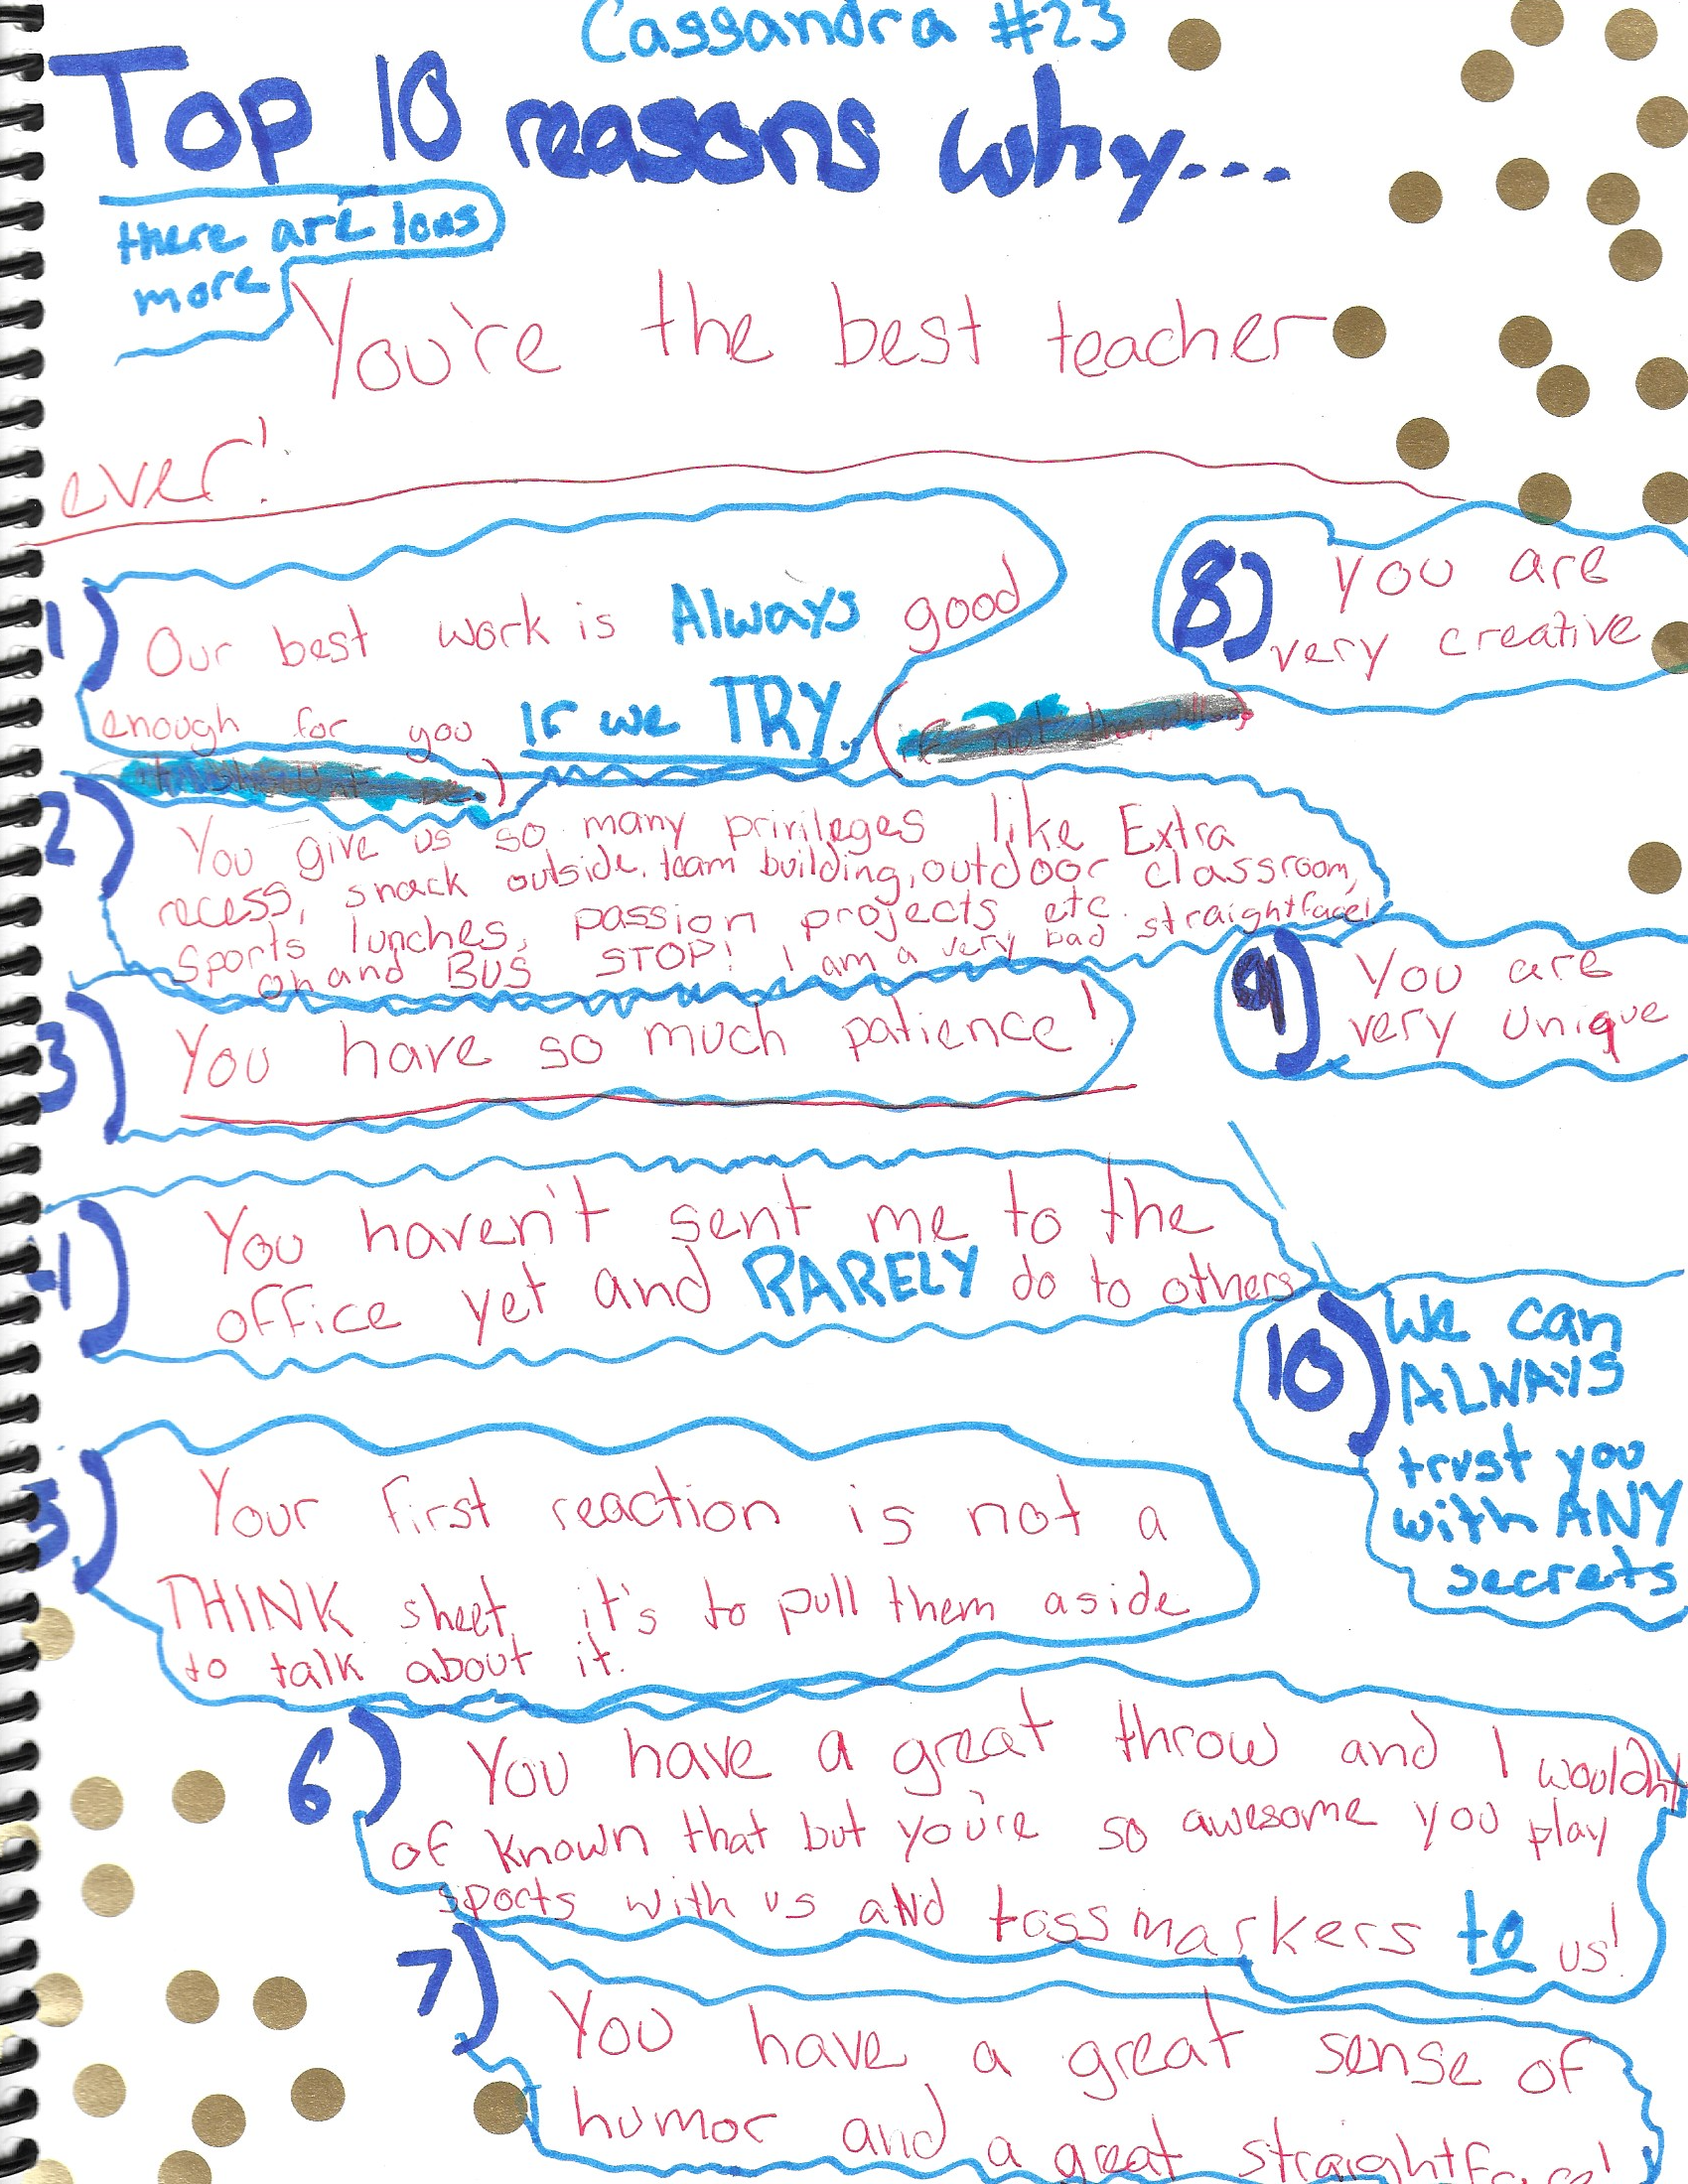 Cassandra #23
Top 10 reasons why...
there are tons
more
You're the best teacher
ever!
1) Our best work is Always good
enough for you If we TRY.
if not then
2) You give us so many privileges like Extra
recess, snack outside, team building, outdoor classroom,
Sports lunches, passion projects etc.
Oh and BUS STOP! I am a very bad straightface!
3) You have so much patience!
4) You haven't sent me to the
office yet and RARELY do to others
5) Your first reaction is not a
THINK sheet, it's to pull them aside
to talk about it.
6) You have a great throw and I wouldn't
of known that but you're so awesome you play
sports with us and toss markers to us!
7) You have a great sense of
humor and a great straightface!
8) you are
very creative
9) You are
very unique
10) We can
ALWAYS
trust you
with ANY
secrets